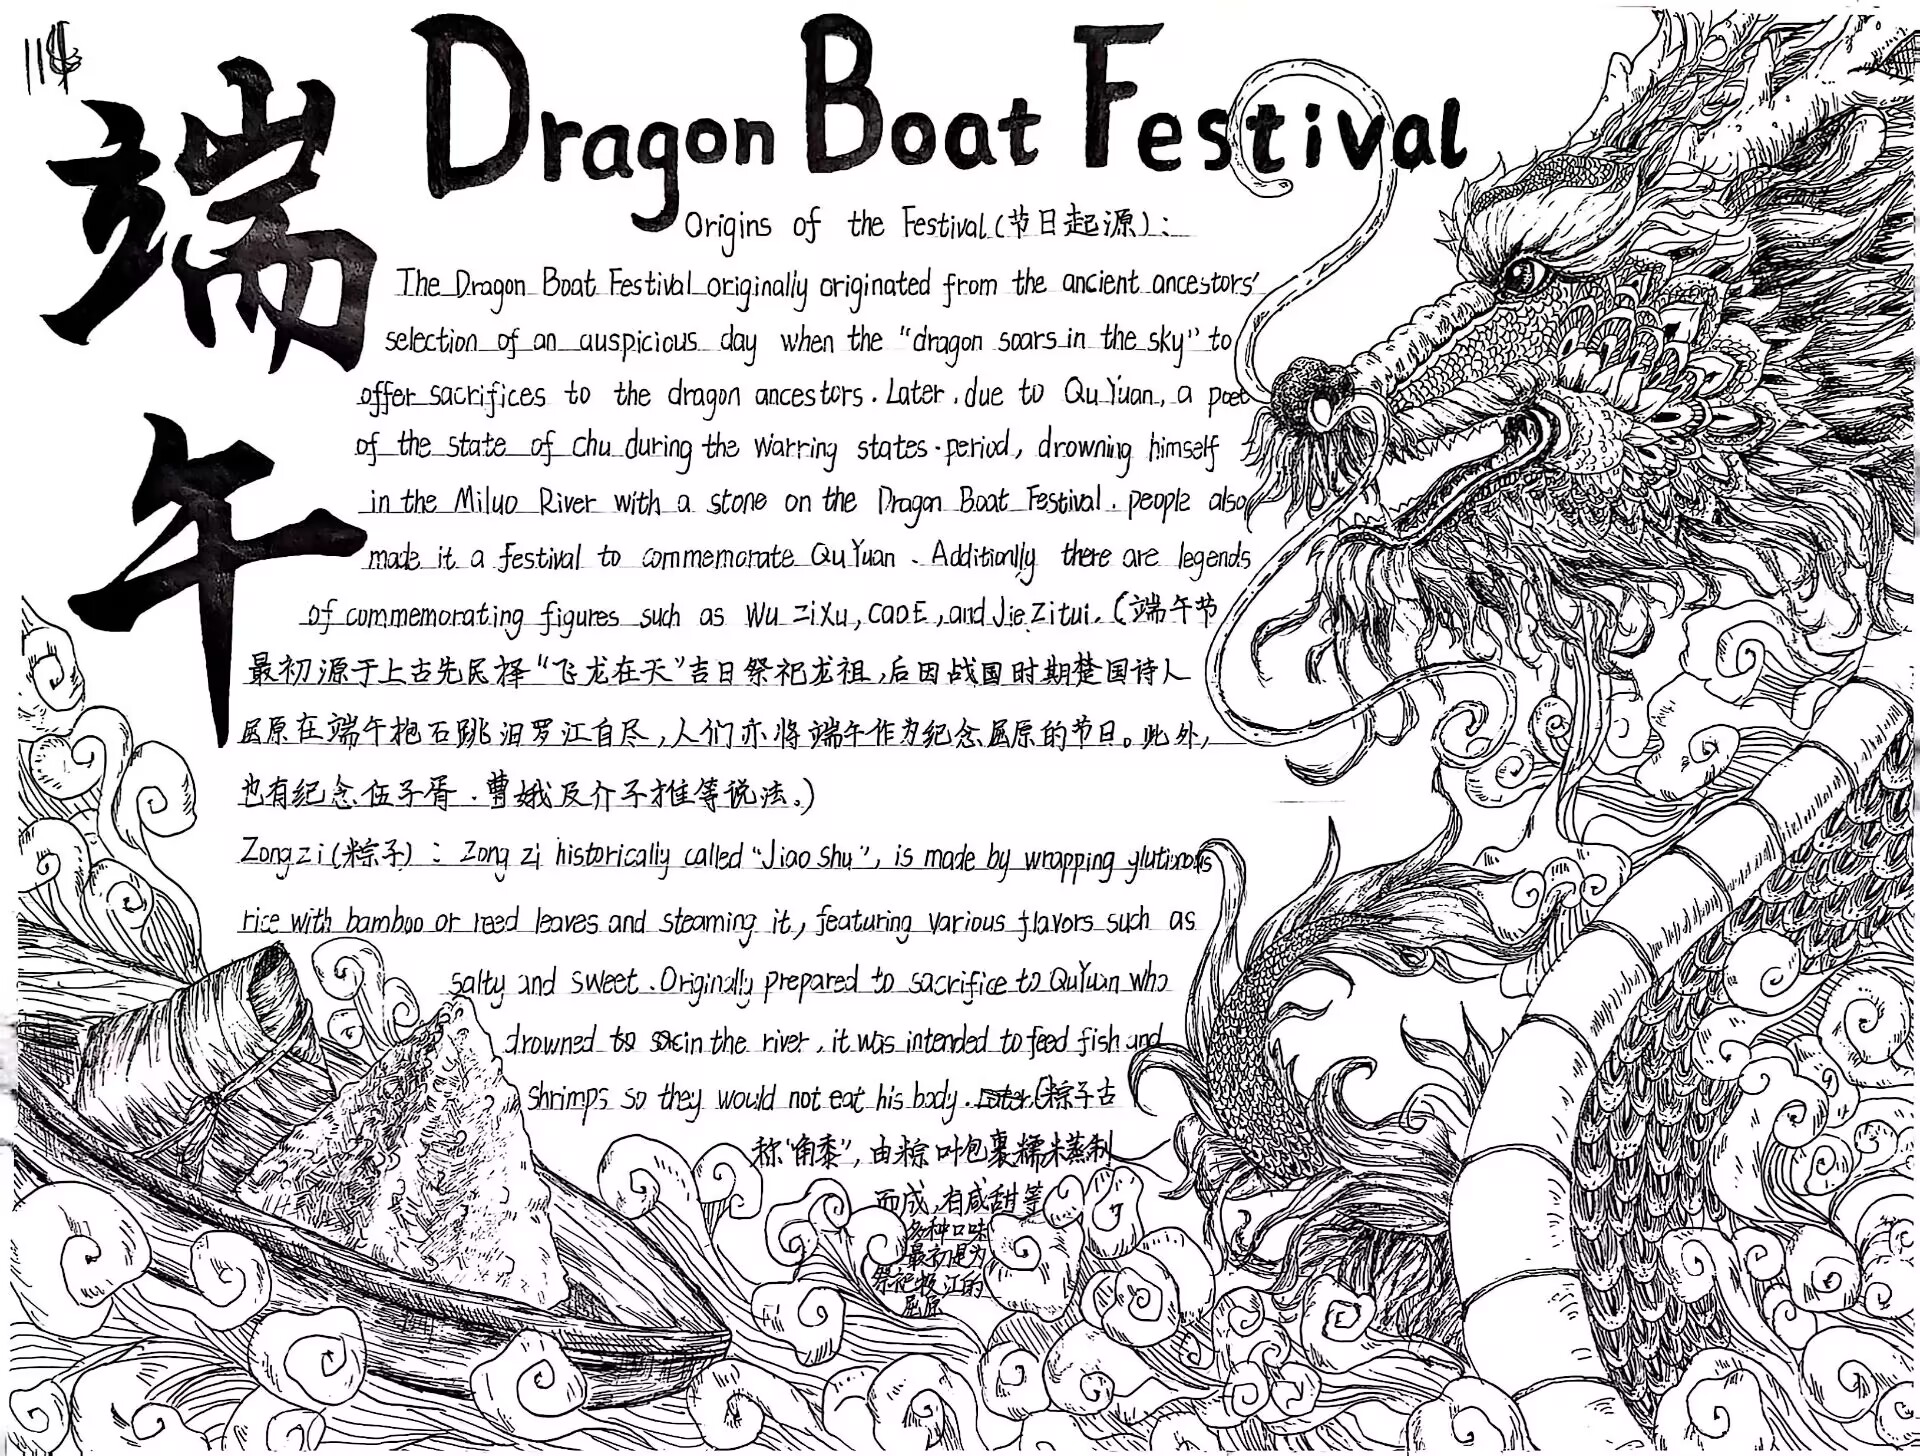 端午
Dragon Boat Festival
Origins of the Festival(节日起源):
The Dragon Boat Festival originally originated from the ancient ancestors'
selection of an auspicious day when the "dragon soars in the sky" to
offer sacrifices to the dragon ancestors. Later, due to Qu Yuan, a poet
of the state of chu during the Warring states period, drowning himself
in the Miluo River with a stone on the Dragon Boat Festival. people also
made it a festival to commemorate Qu Yuan. Additionlly there are legends
of commemorating figures such as Wu ZiXu, CaoE, and Jie Zitui. (端午节
最初源于上古先民择“飞龙在天”吉日祭祀龙祖,后因战国时期楚国诗人
屈原在端午抱石跳汨罗江自尽,人们亦将端午作为纪念屈原的节日。此外,
也有纪念伍子胥、曹娥及介子推等说法。)
Zongzi(粽子): Zong zi historically called "Jiao Shu", is made by wrapping glutinous
rice with bamboo or reed leaves and steaming it, featuring various flavors such as
salty and sweet. Originally prepared to sacrifice to QuYuan who
drowned in the river, it was intended to feed fish and
Shrimps so they would not eat his body. (粽子古
称“角黍”,由粽叶包裹糯米蒸制
而成,有咸甜等
多种口味
最初是为
祭祀投江的
屈原